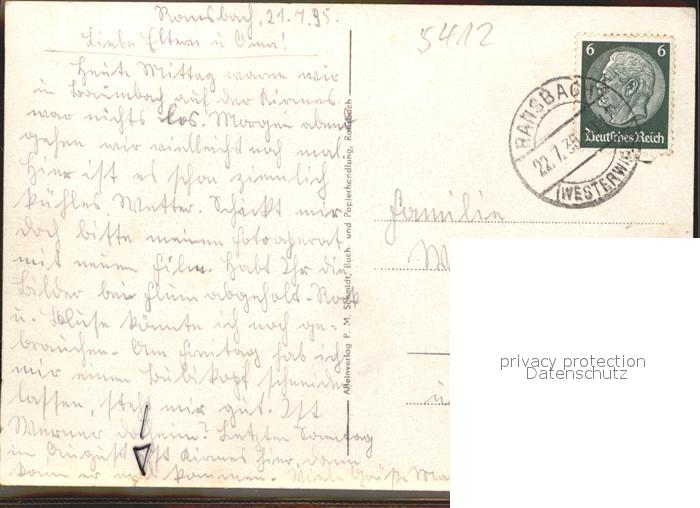 Ransbach, 21.7.35.
Liebe Eltern u. Oma!
Heute Mittag waren wir
in Baumbach auf der Kirmes
war nichts los. Morgen abend
gehen wir vielleicht noch mal
hier ist es schon ziemlich
kühles Wetter. Schickt mir
doch bitte meinen Fotoaperat
mit neuen Film. Habt Ihr die
Bilder bei abgeholt. Rock
u. Bluse könnte ich noch ge-
brauchen. Am Freitag hab ich
mir einen Bubikopf schneiden
lassen, steht mir gut. Ist
Werner daheim? Letzten Samstag
im August ist Kirmes hier, dann
kann er kommen. Viele Grüße
Alleinverlag P. M. Schmidt, Buch- und Papierhandlung, Ransbach
5412
6 6
Deutsches Reich
RANSBACH
22.7.35
(WESTERWALD)
Familie
privacy protection
Datenschutz